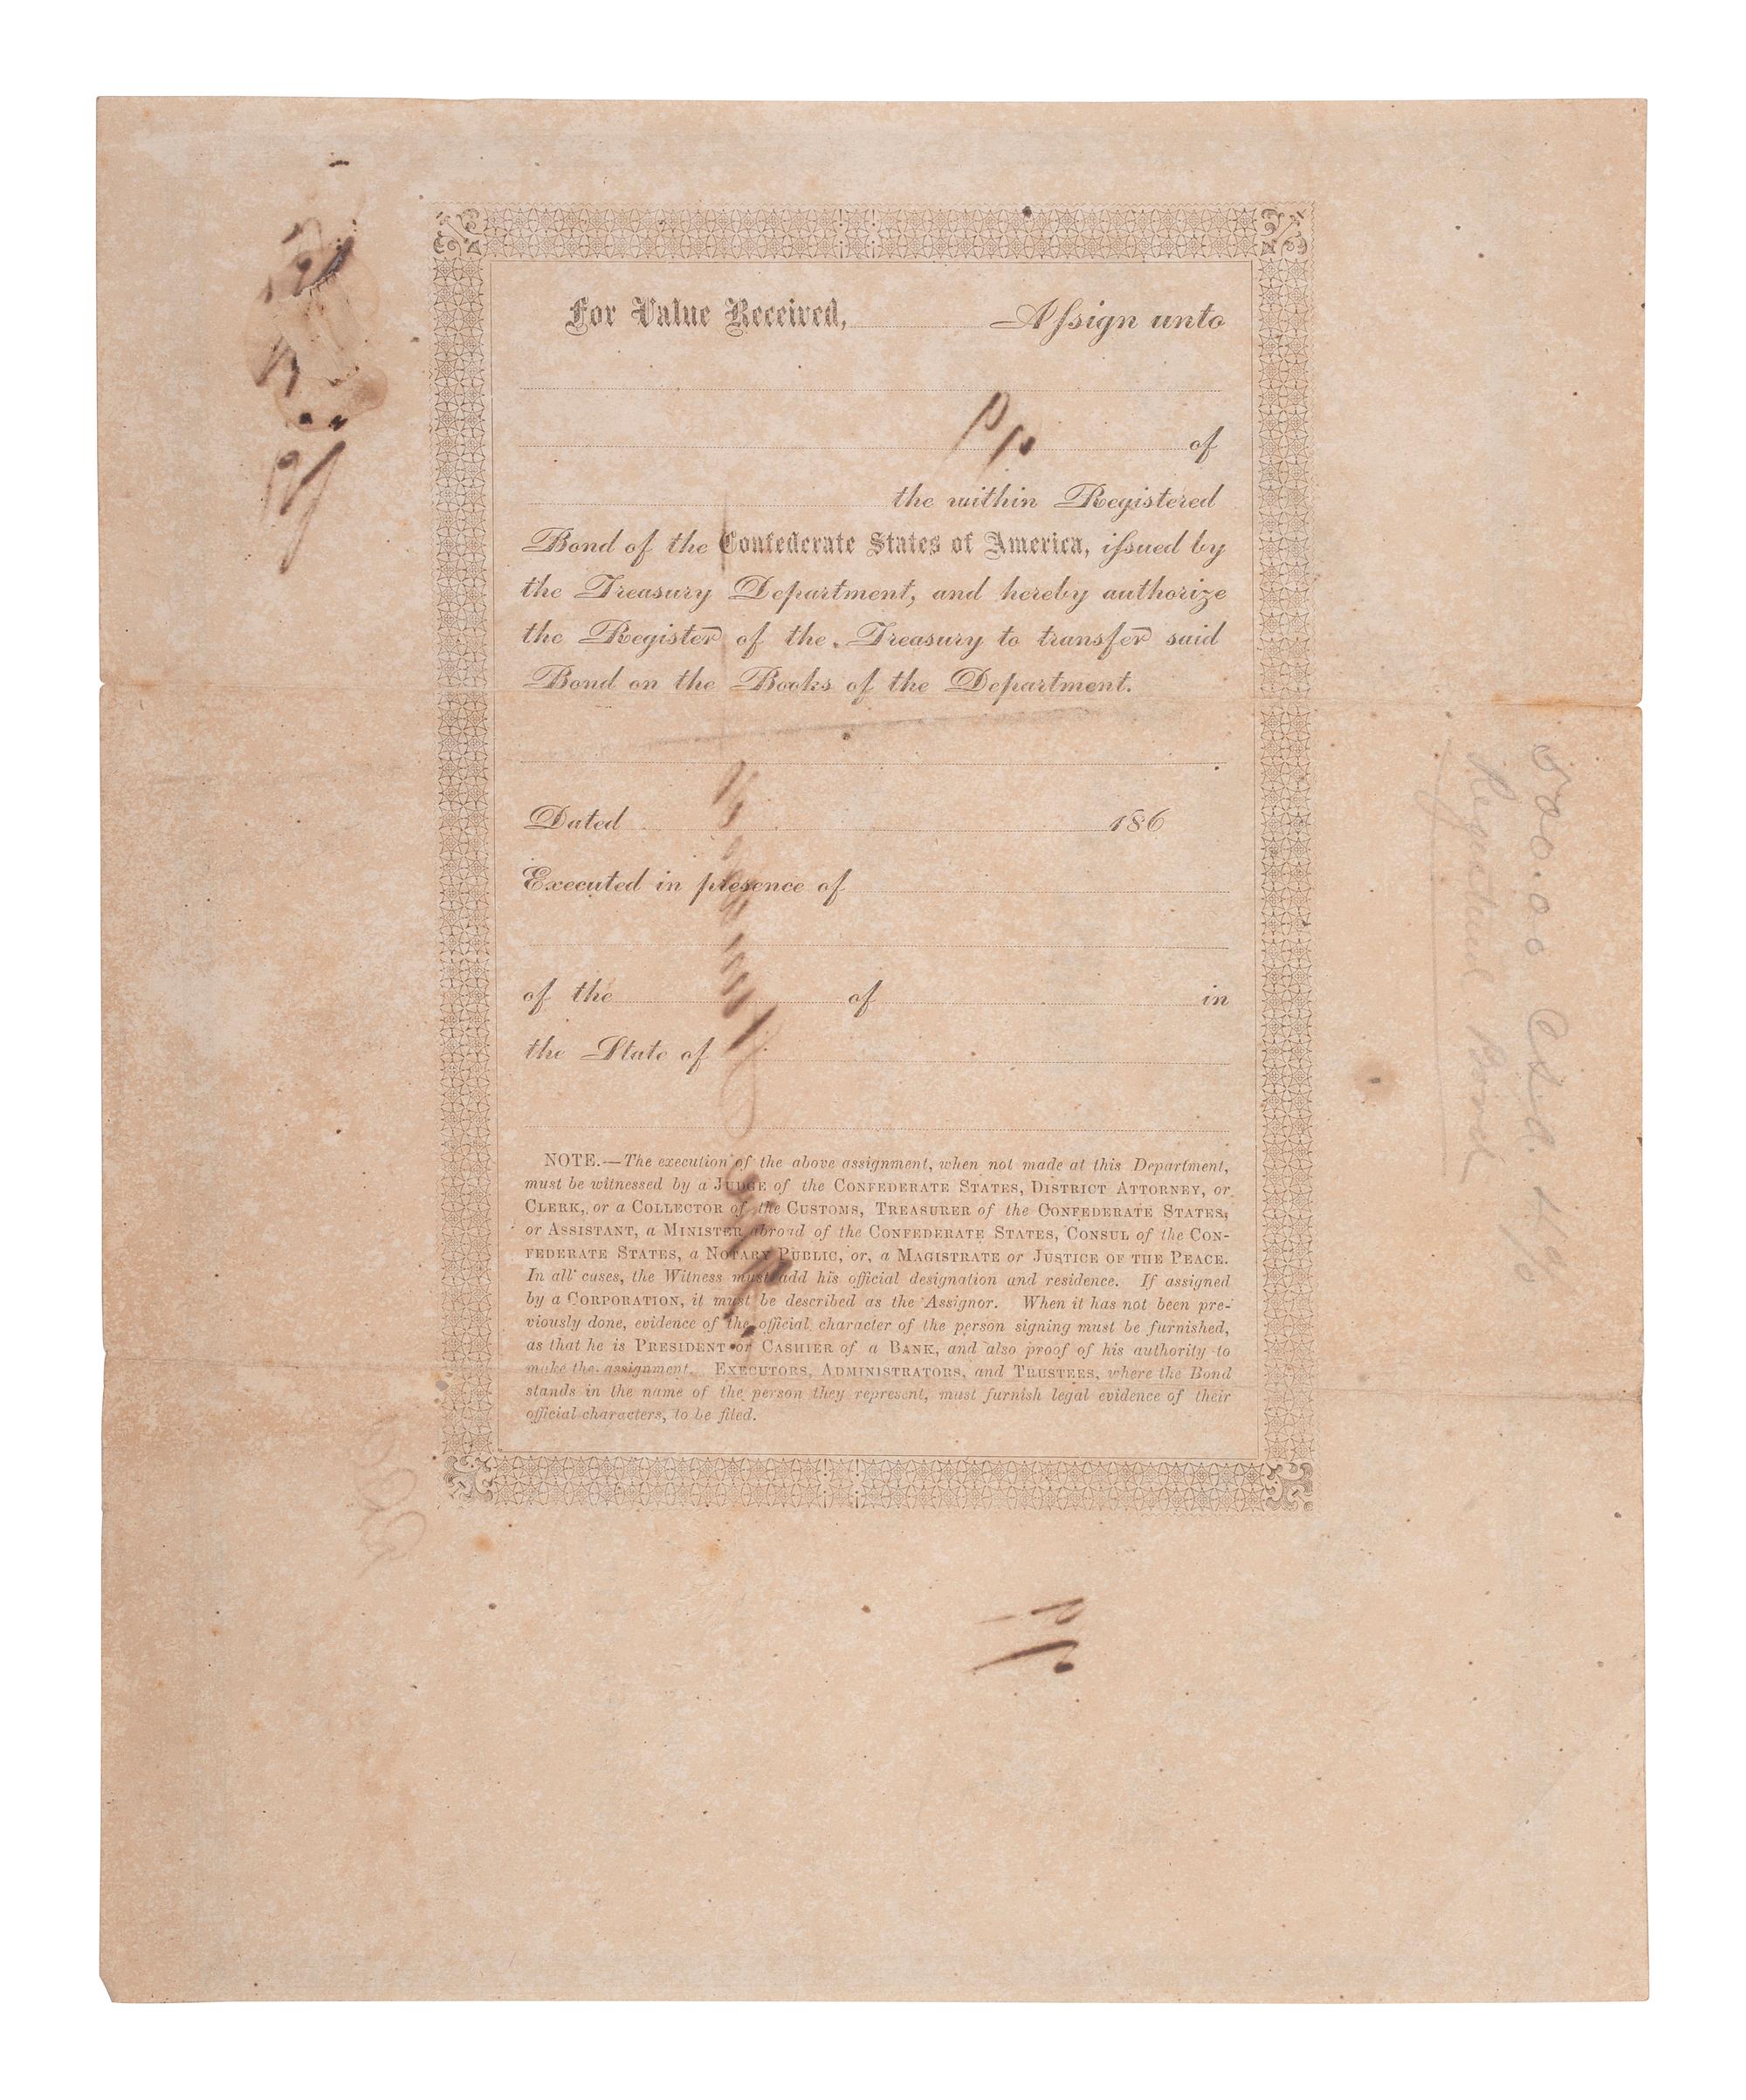 For Value Received, Aſsign unto
of
the within Registered
Bond of the Confederate States of America, iſsued by
the Treasury Department, and hereby authorize
the Register of the Treasury to transfer said
Bond on the Books of the Department.
Dated 186
Executed in presence of
of the of in
the State of
NOTE.—The execution of the above assignment, when not made at this Department,
must be witnessed by a JUDGE of the CONFEDERATE STATES, DISTRICT ATTORNEY, or
CLERK, or a COLLECTOR of the CUSTOMS, TREASURER of the CONFEDERATE STATES,
or ASSISTANT, a MINISTER abroad of the CONFEDERATE STATES, CONSUL of the CON-
FEDERATE STATES, a NOTARY PUBLIC, or, a MAGISTRATE or JUSTICE OF THE PEACE.
In all cases, the Witness must add his official designation and residence. If assigned
by a CORPORATION, it must be described as the Assignor. When it has not been pre-
viously done, evidence of the official character of the person signing must be furnished,
as that he is PRESIDENT or CASHIER of a BANK, and also proof of his authority to
make the assignment. EXECUTORS, ADMINISTRATORS, and TRUSTEES, where the Bond
stands in the name of the person they represent, must furnish legal evidence of their
official characters, to be filed.
500.00 C.S.A. 4%
Registered Bond